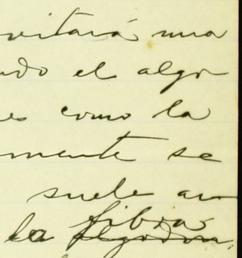 vitará una
ndo el algo
es como la
mente se
suele au
fibra
la algodon,